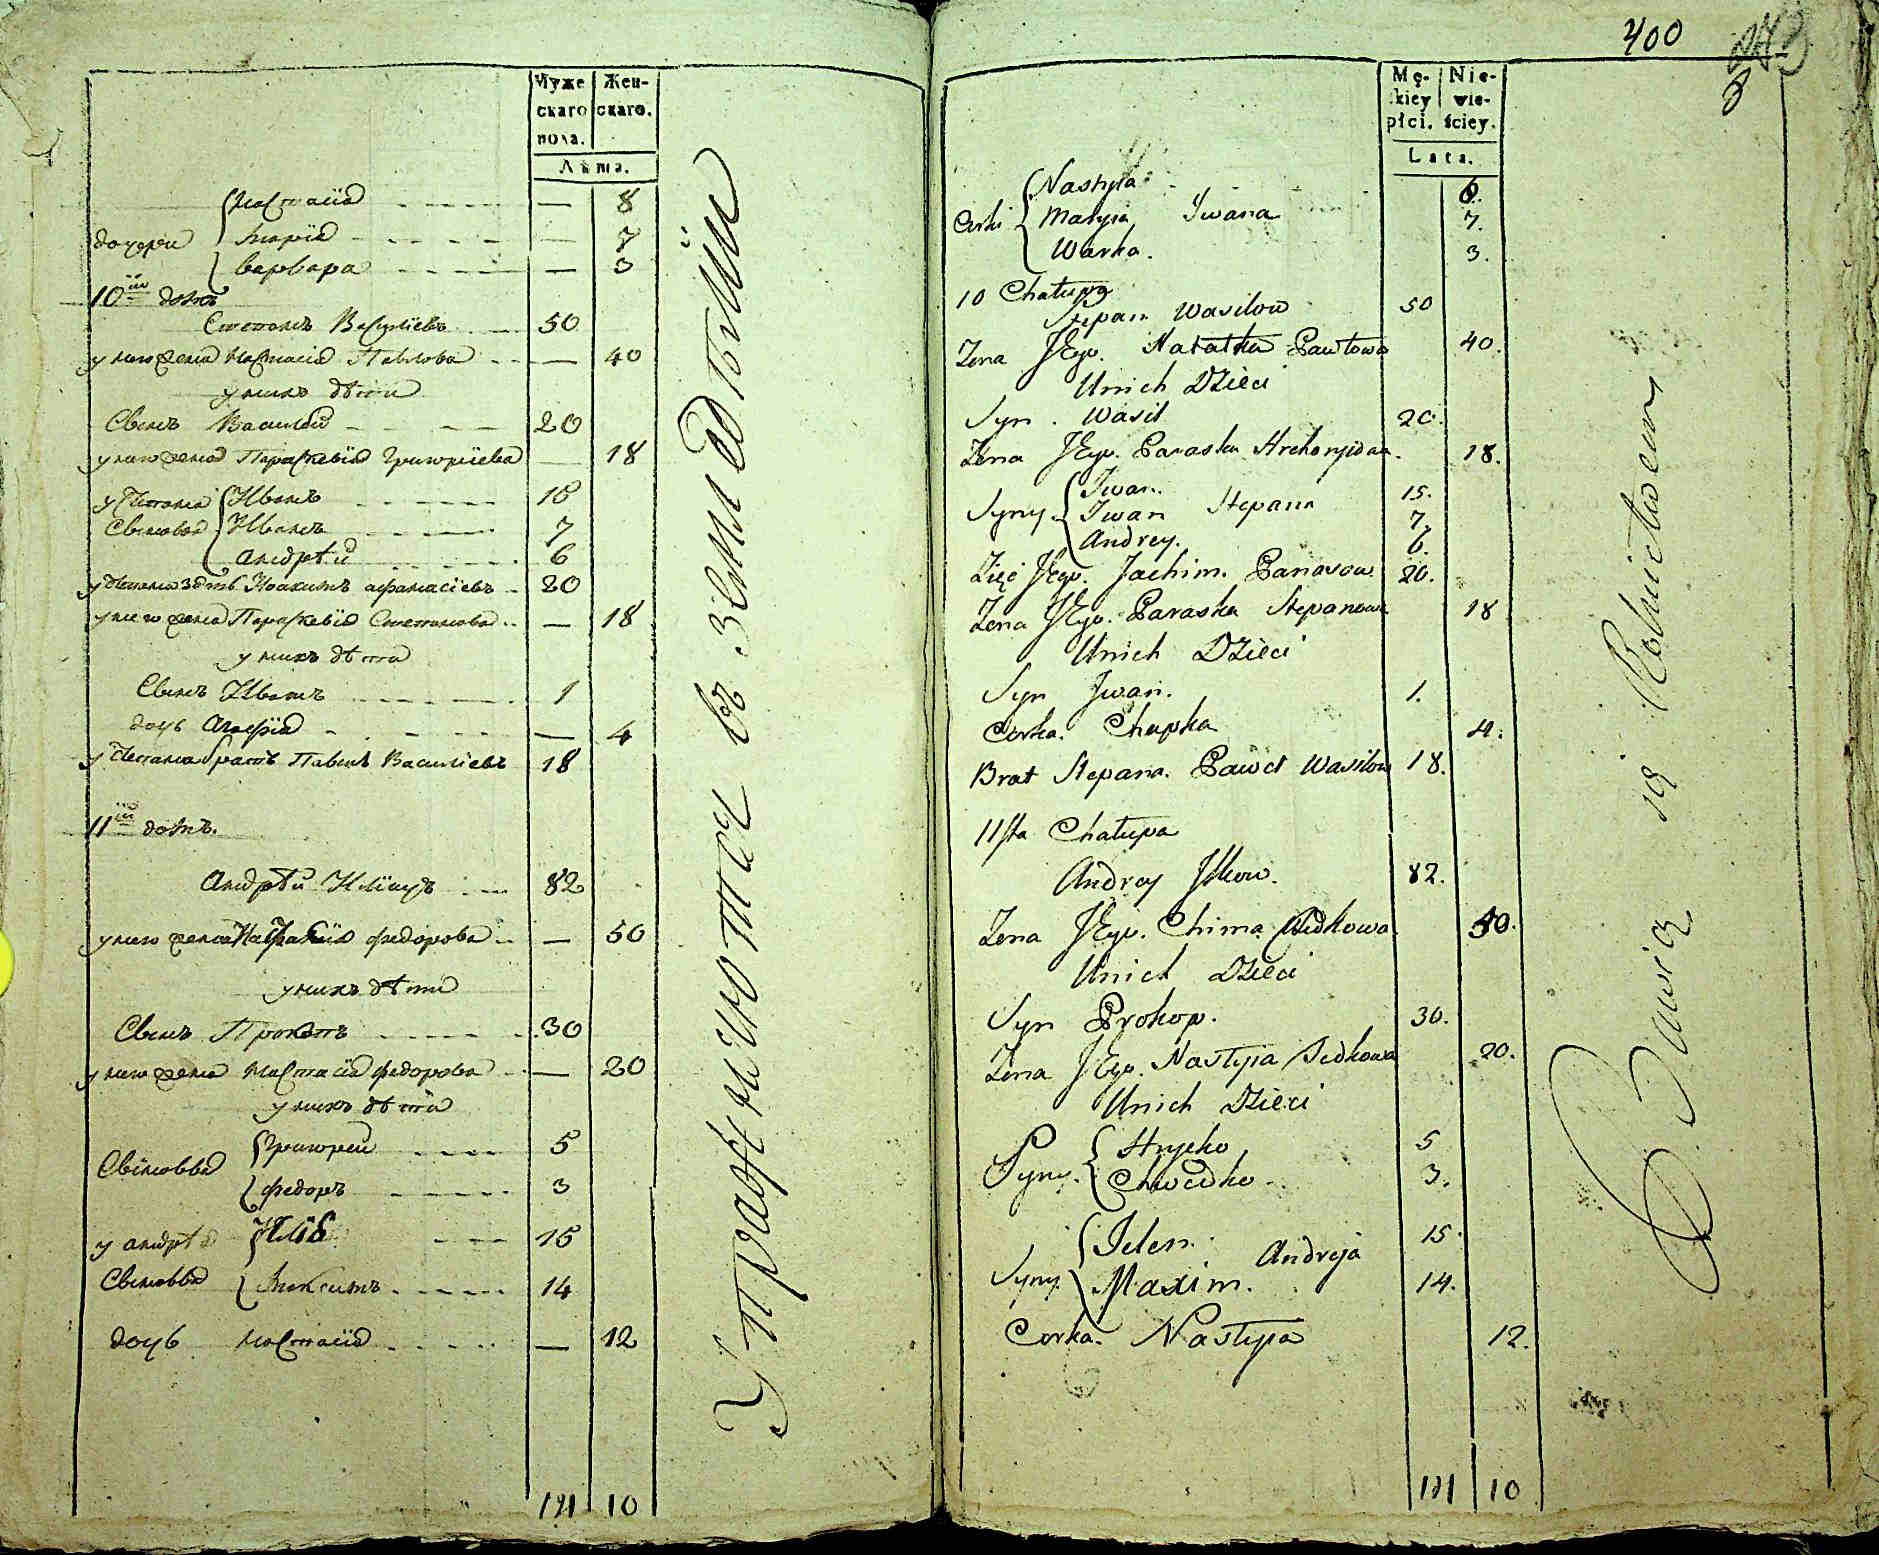 Муже
скаго
пола.
Жен-
скаго.
Лѣта.
настасiя 8
дочери марiя 7
варвара 3
10й домъ
Степанъ Василiевъ 50
у него жена Настасiя Павлова 40
у нихъ дѣти
Сынъ Василiй 20
у него жена Параскевiя Григорiева 18
у Степана Иванъ 15
Сыновья Иванъ 7
андрѣй 6
у Степана зять Иоакимъ афанасiевъ 20
у него жена Параскевiя Степанова 18
у нихъ дѣти
Сынъ Иванъ 1
дочь 4
у Степана братъ Павелъ Василiевъ 18
11й домъ.
Андрѣй 82
у него жена федорова 50
у нихъ дѣти
Сынъ Прокопъ 30
у него жена настасiя федорова 20
у нихъ дѣти
Сыновья григорей 5
федоръ 3
у андрѣя 15
Сыновья максимъ 14
дочь настасiя 12
10
Упражняются въ земледѣлiи
400
Mę-
kiey
płci.
Nie-
wie-
ściey.
Lata.
Nastyia 8.
Corki Maryia Iwana 7.
Warka. 3.
10 Chałupa
Stepan Wasilow 50
Zona JEgo. Natalka Pawłowa 40.
Unich Dzieci
Syn. Wasil 20.
Zona JEgo. Paraska Hrehoryiowa. 18.
Iwan. 15.
Syny. Iwan Stepana 7.
Andrey. 6.
Zięć JEgo. Jachim. Panasow. 20.
Zona JEgo. Paraska Stepanowa 18
Unich Dzieci
Syn Iwan. 1.
Corka. Chapka 4.
Brat Stepana. Paweł Wasilow 18.
11sta Chałupa
Andrey Ilkow. 82.
Zona JEgo. Chima Fedkowa 50.
Unich Dzieci
Syn Prokop. 30.
Zona JEgo. Nastyia Fedkowa 20.
Unich Dzieci
Syny. Hryćko 5
Chwedko 3.
Jelen. 15.
Syny Andreja
Maxim. 14.
Corka. Nastyia 12.
10
Bawią się Rolnictwem